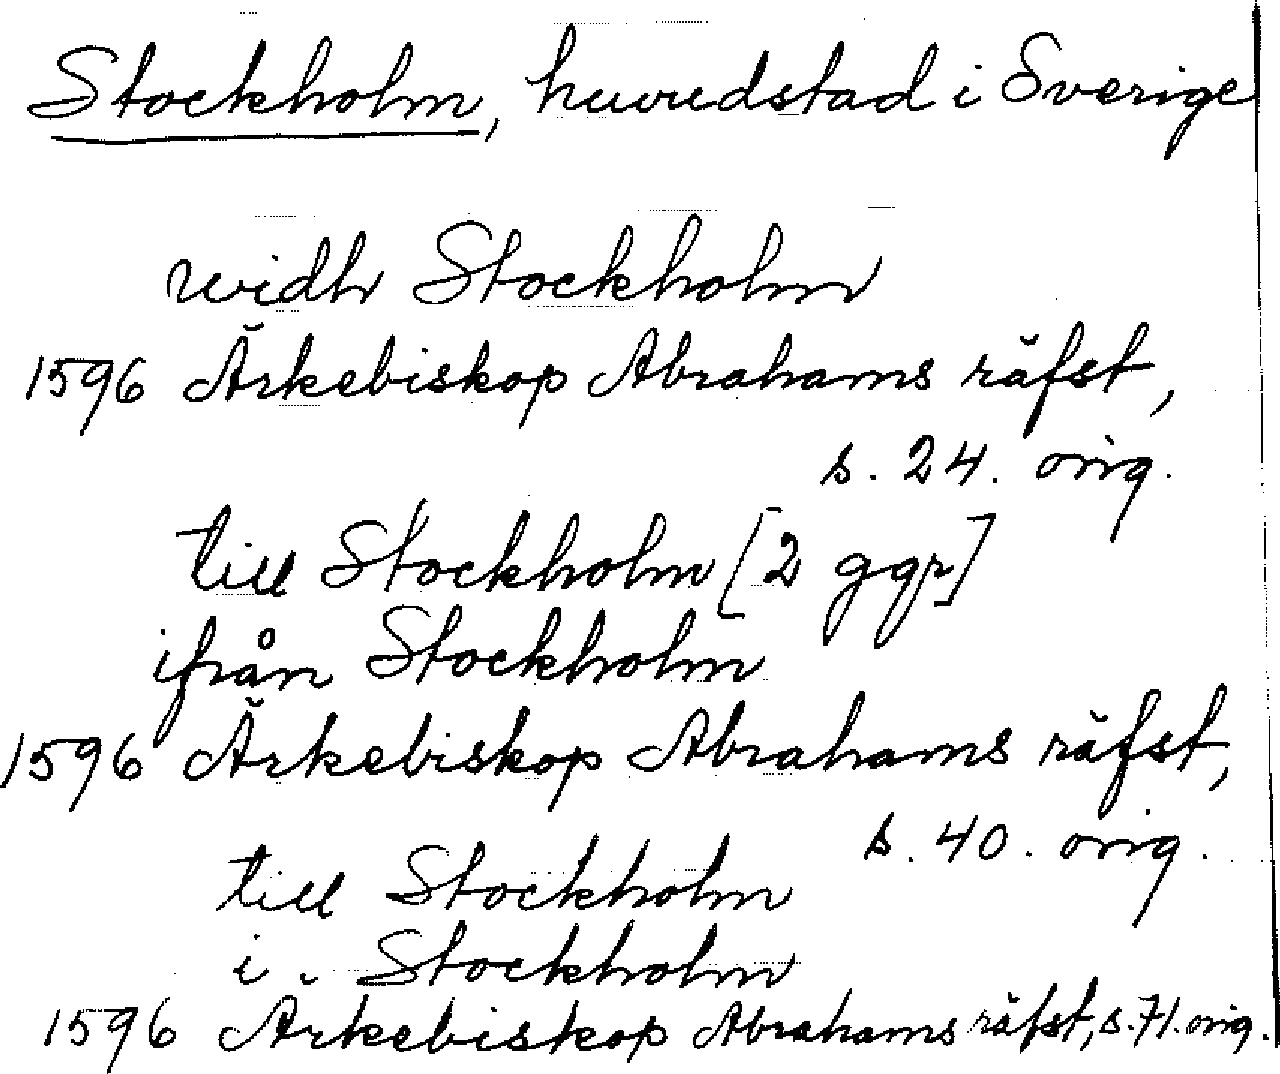 Stockholm, huvudstad i Sverige
widh Stockholm
1596 Ärkebiskop Abrahams räfst,
s. 24. orig.
till Stockholm [2 ggr]
ifrån Stockholm
1596 Ärkebiskop Abrahams räfst,
s. 40. orig.
till Stockholm
i Stockholm
1596 Ärkebiskop Abrahams räfst, s. 71. orig.